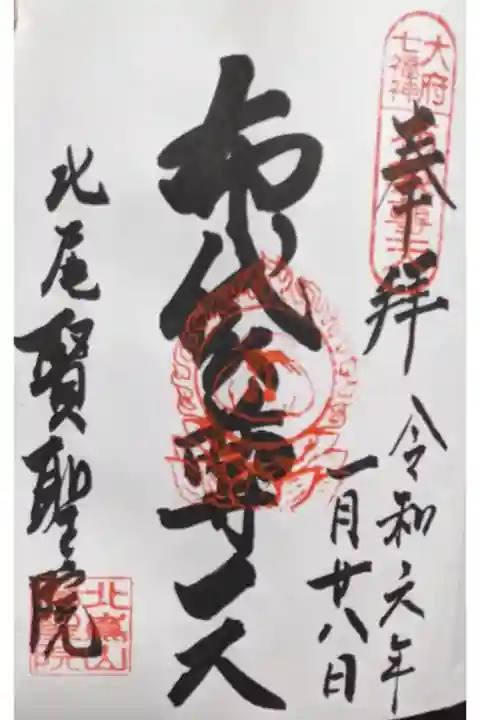 大府
七福神
奉拝
令和六年
一月廿八日
布袋尊天
北尾賢聖院